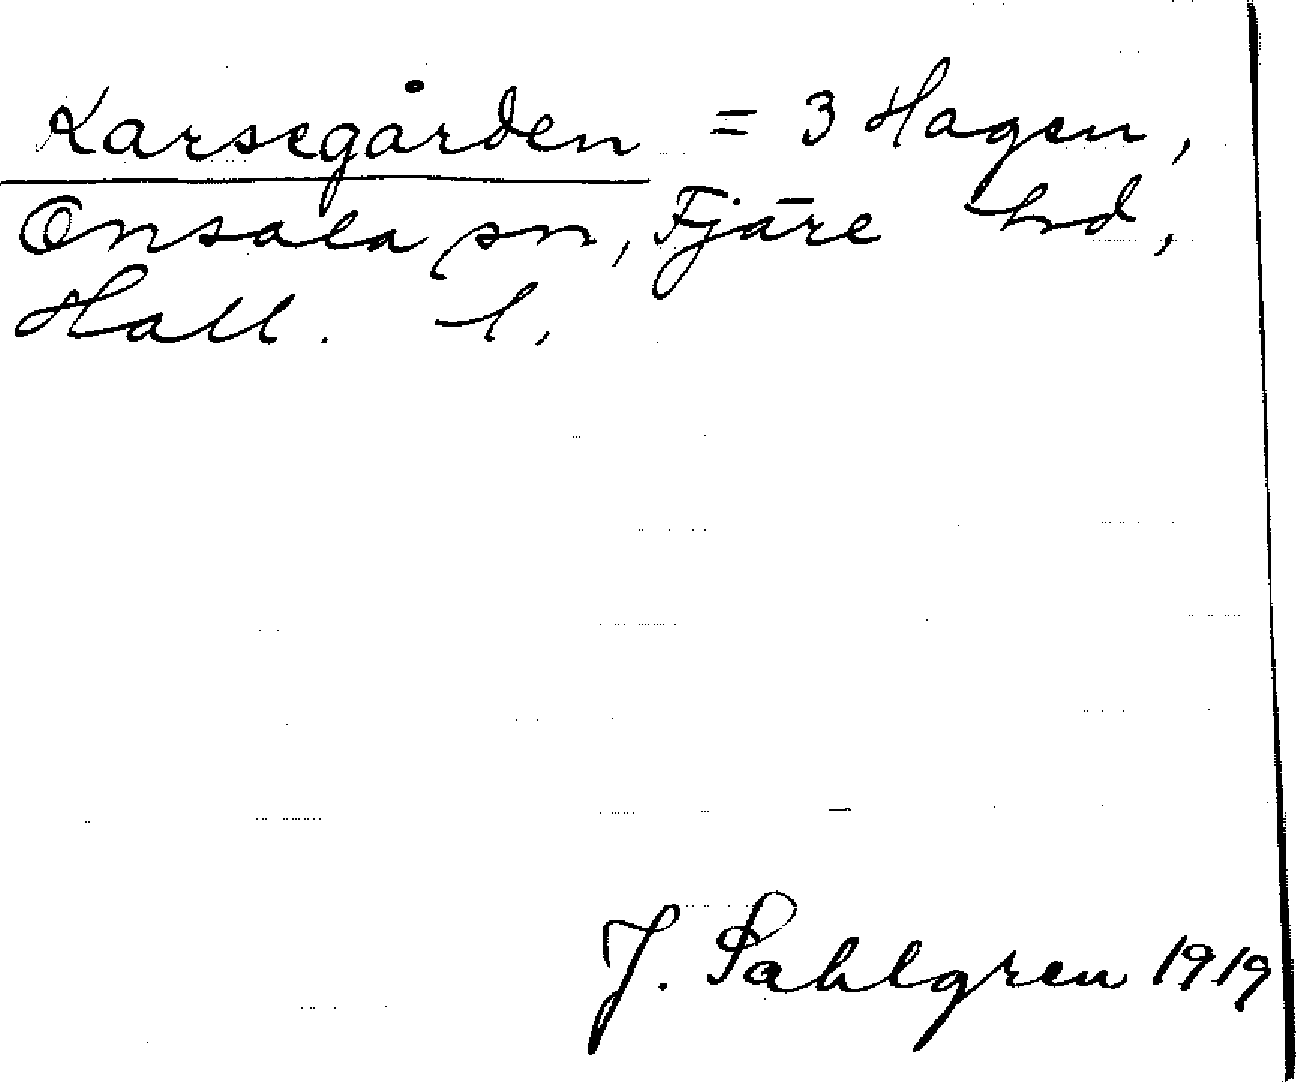 Karsegården = 3 Hagen,
Onsala sn, Fjäre hd,
Hall. l.
J. Sahlgren 1919